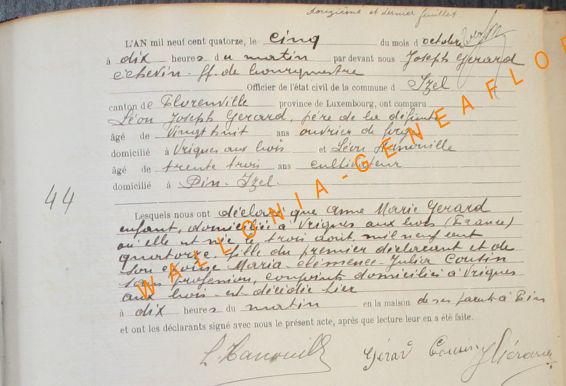 douzième et dernier feuillet
L'AN mil neuf cent quatorze, le cinq du mois d'octobre
à dix heures du matin par devant nous Joseph Gerard
echevin ff. de bourgmestre
Officier de l'état civil de la commune d Izel
canton de Florenville province de Luxembourg, ont comparu
Léon Joseph Gerard, père de la défunte
âgé de Vingt huit ans ouvrier de
domicilié à Vrignes aux bois et Léon Hanouille
âgé de trente trois ans cultivateur
domicilié à Pin-Izel
44
Lesquels nous ont déclaré que Anne Marie Gerard
enfant, domiciliée à Vrignes aux bois (France)
où elle est née le trois août mil neuf cent
quatorze fille du premier déclarant et de
son épouse Maria-clémence-Julia Coutin
sans profession, conjoints domiciliés à Vrignes
aux bois est décédée hier
à dix heures du matin en la maison de ses parents à Pin
et ont les déclarants signé avec nous le présent acte, après que lecture leur en a été faite.
L Hanouille Gérard
WALLONIA-GENEAFLO